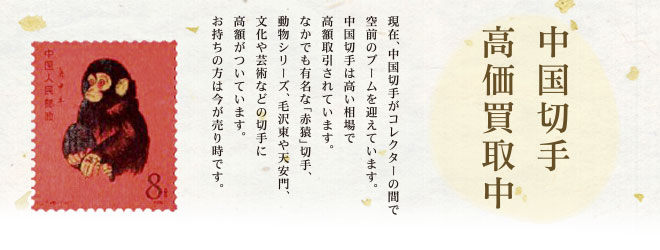 中国切手
高価買取中
現在、中国切手がコレクターの間で
空前のブームを迎えています。
中国切手は高い相場で
高額取引されています。
なかでも有名な「赤猿」切手、
動物シリーズ、毛沢東や天安門、
文化や芸術などの切手に
高額がついています。
お持ちの方は今が売り時です。
中国人民邮政
庚申年
8